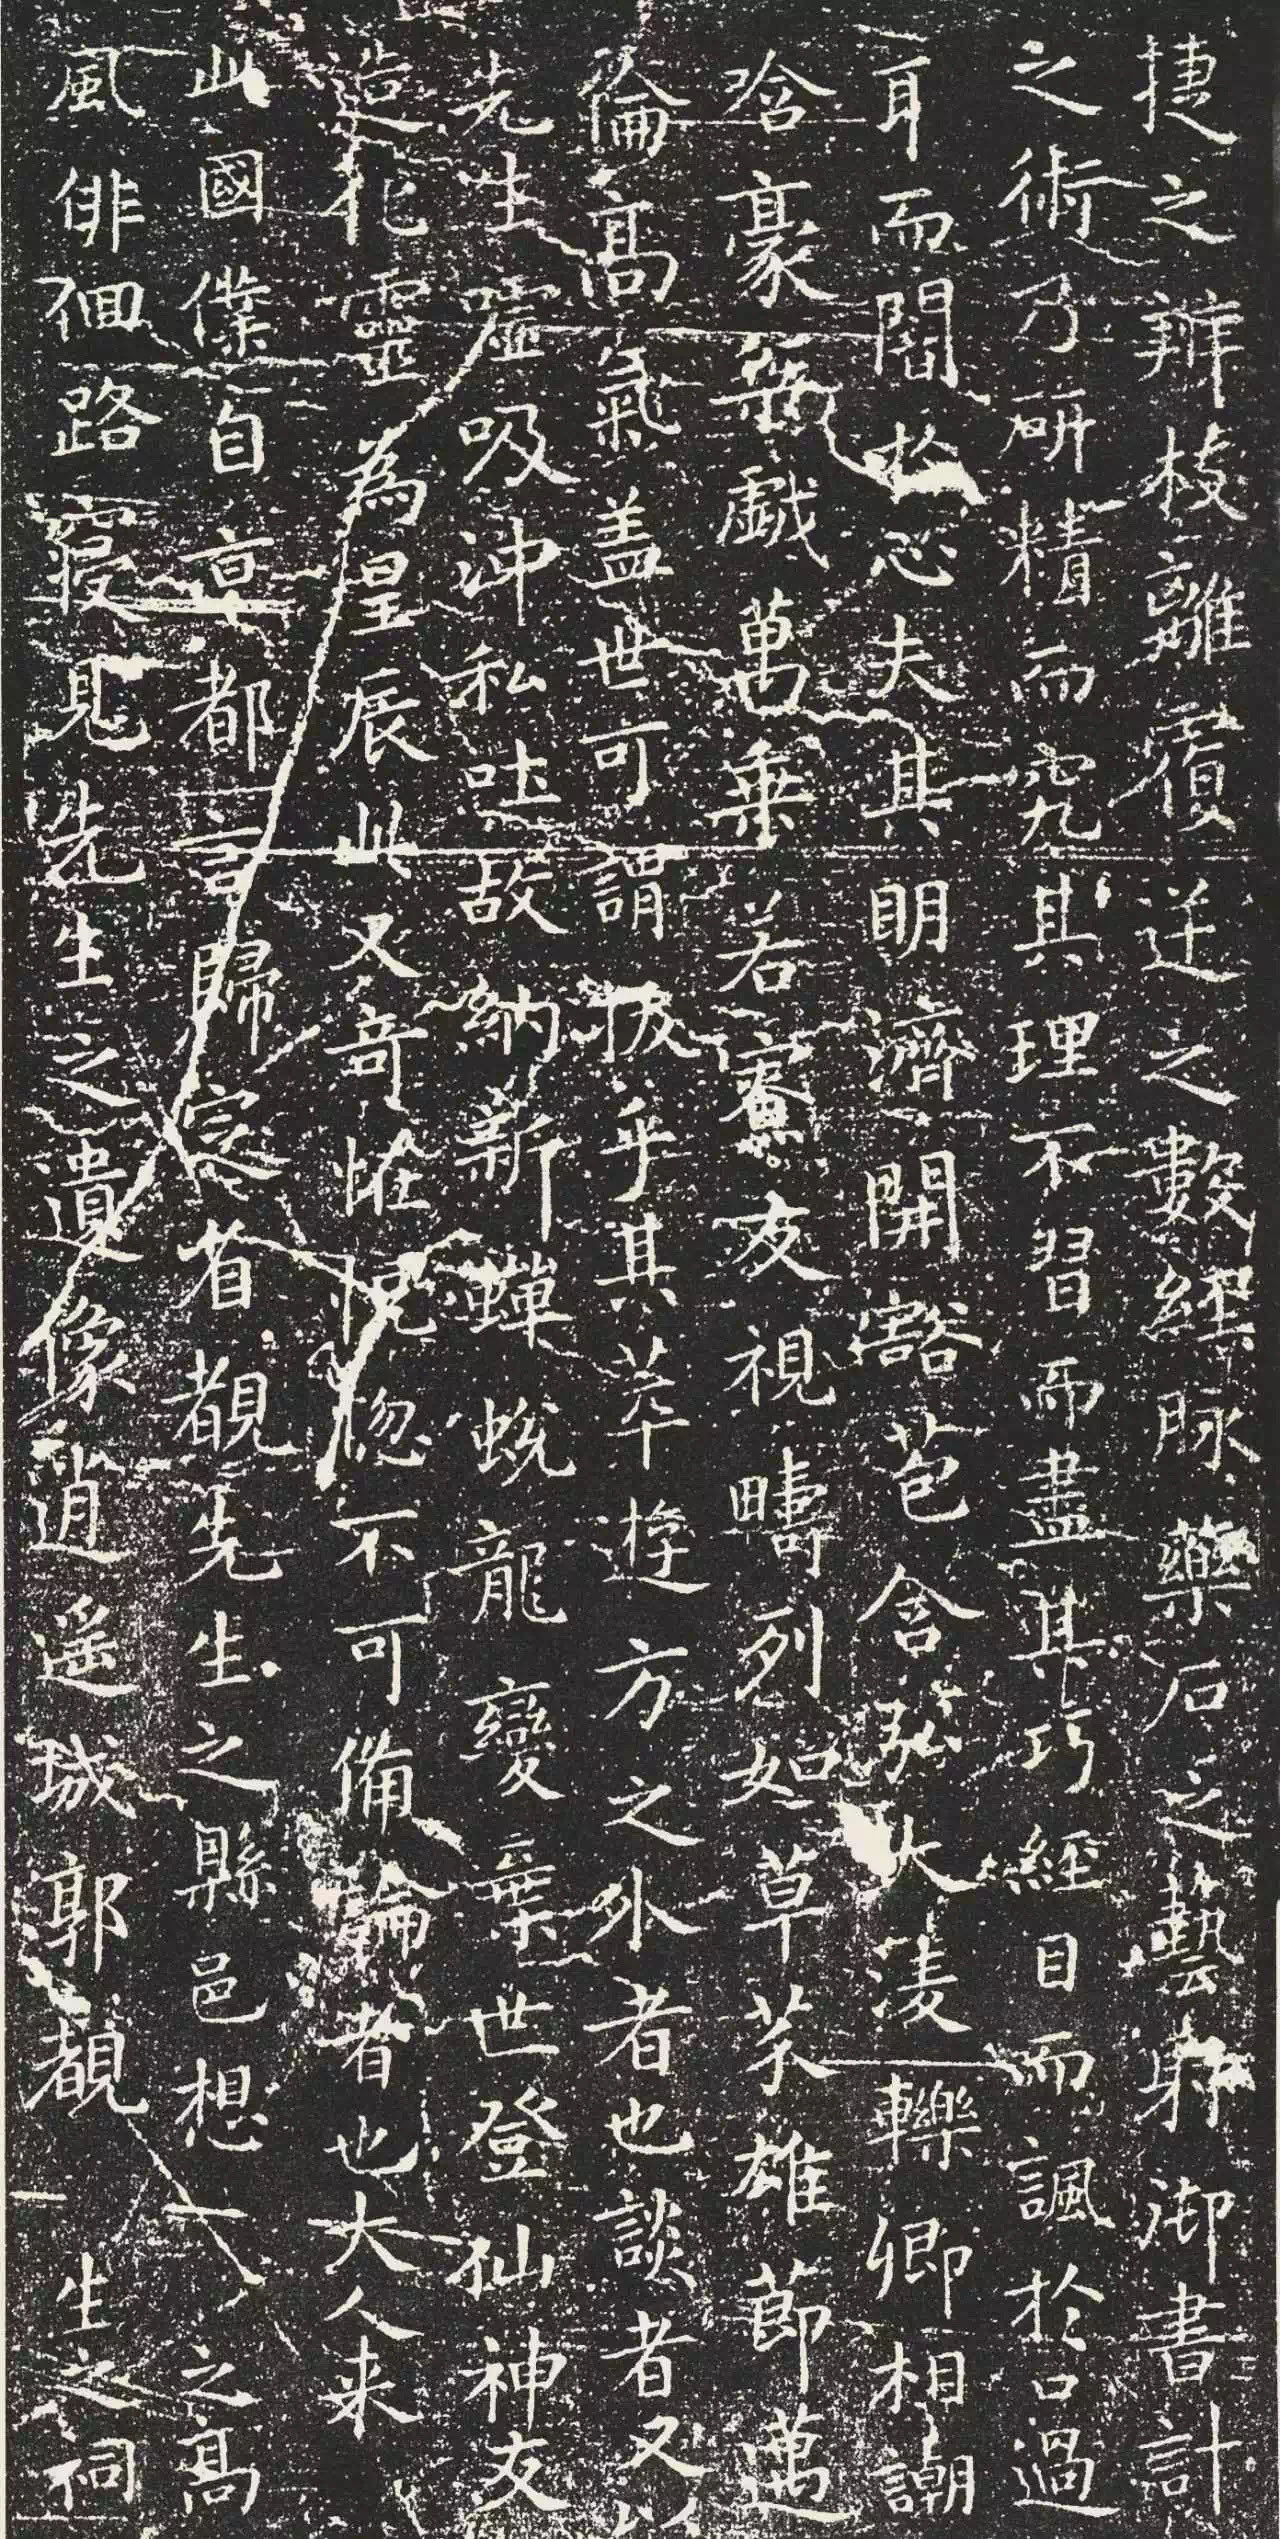 捷之辨枝離覆逆之數經脉藥石之藝射御書計
之術乃研精而究其理不習而盡其巧經目而諷於口過
耳而闇於心夫其明濟開豁苞含弘大淩轢卿相謿
唅豪桀戲萬乗若寮友視疇列如草芥雄節邁
倫高氣盖世可謂拔乎其萃遊方之外者也談者又以
先生嘘吸沖和吐故納新蟬蛻龍變棄世登仙神友
造化靈為星辰此又奇怪恍惚不可備論者也大人来
此國僕自京都言歸定省覩先生之縣邑想之高
風俳佪路寝見先生之遺像逍遥城郭覩生之祠